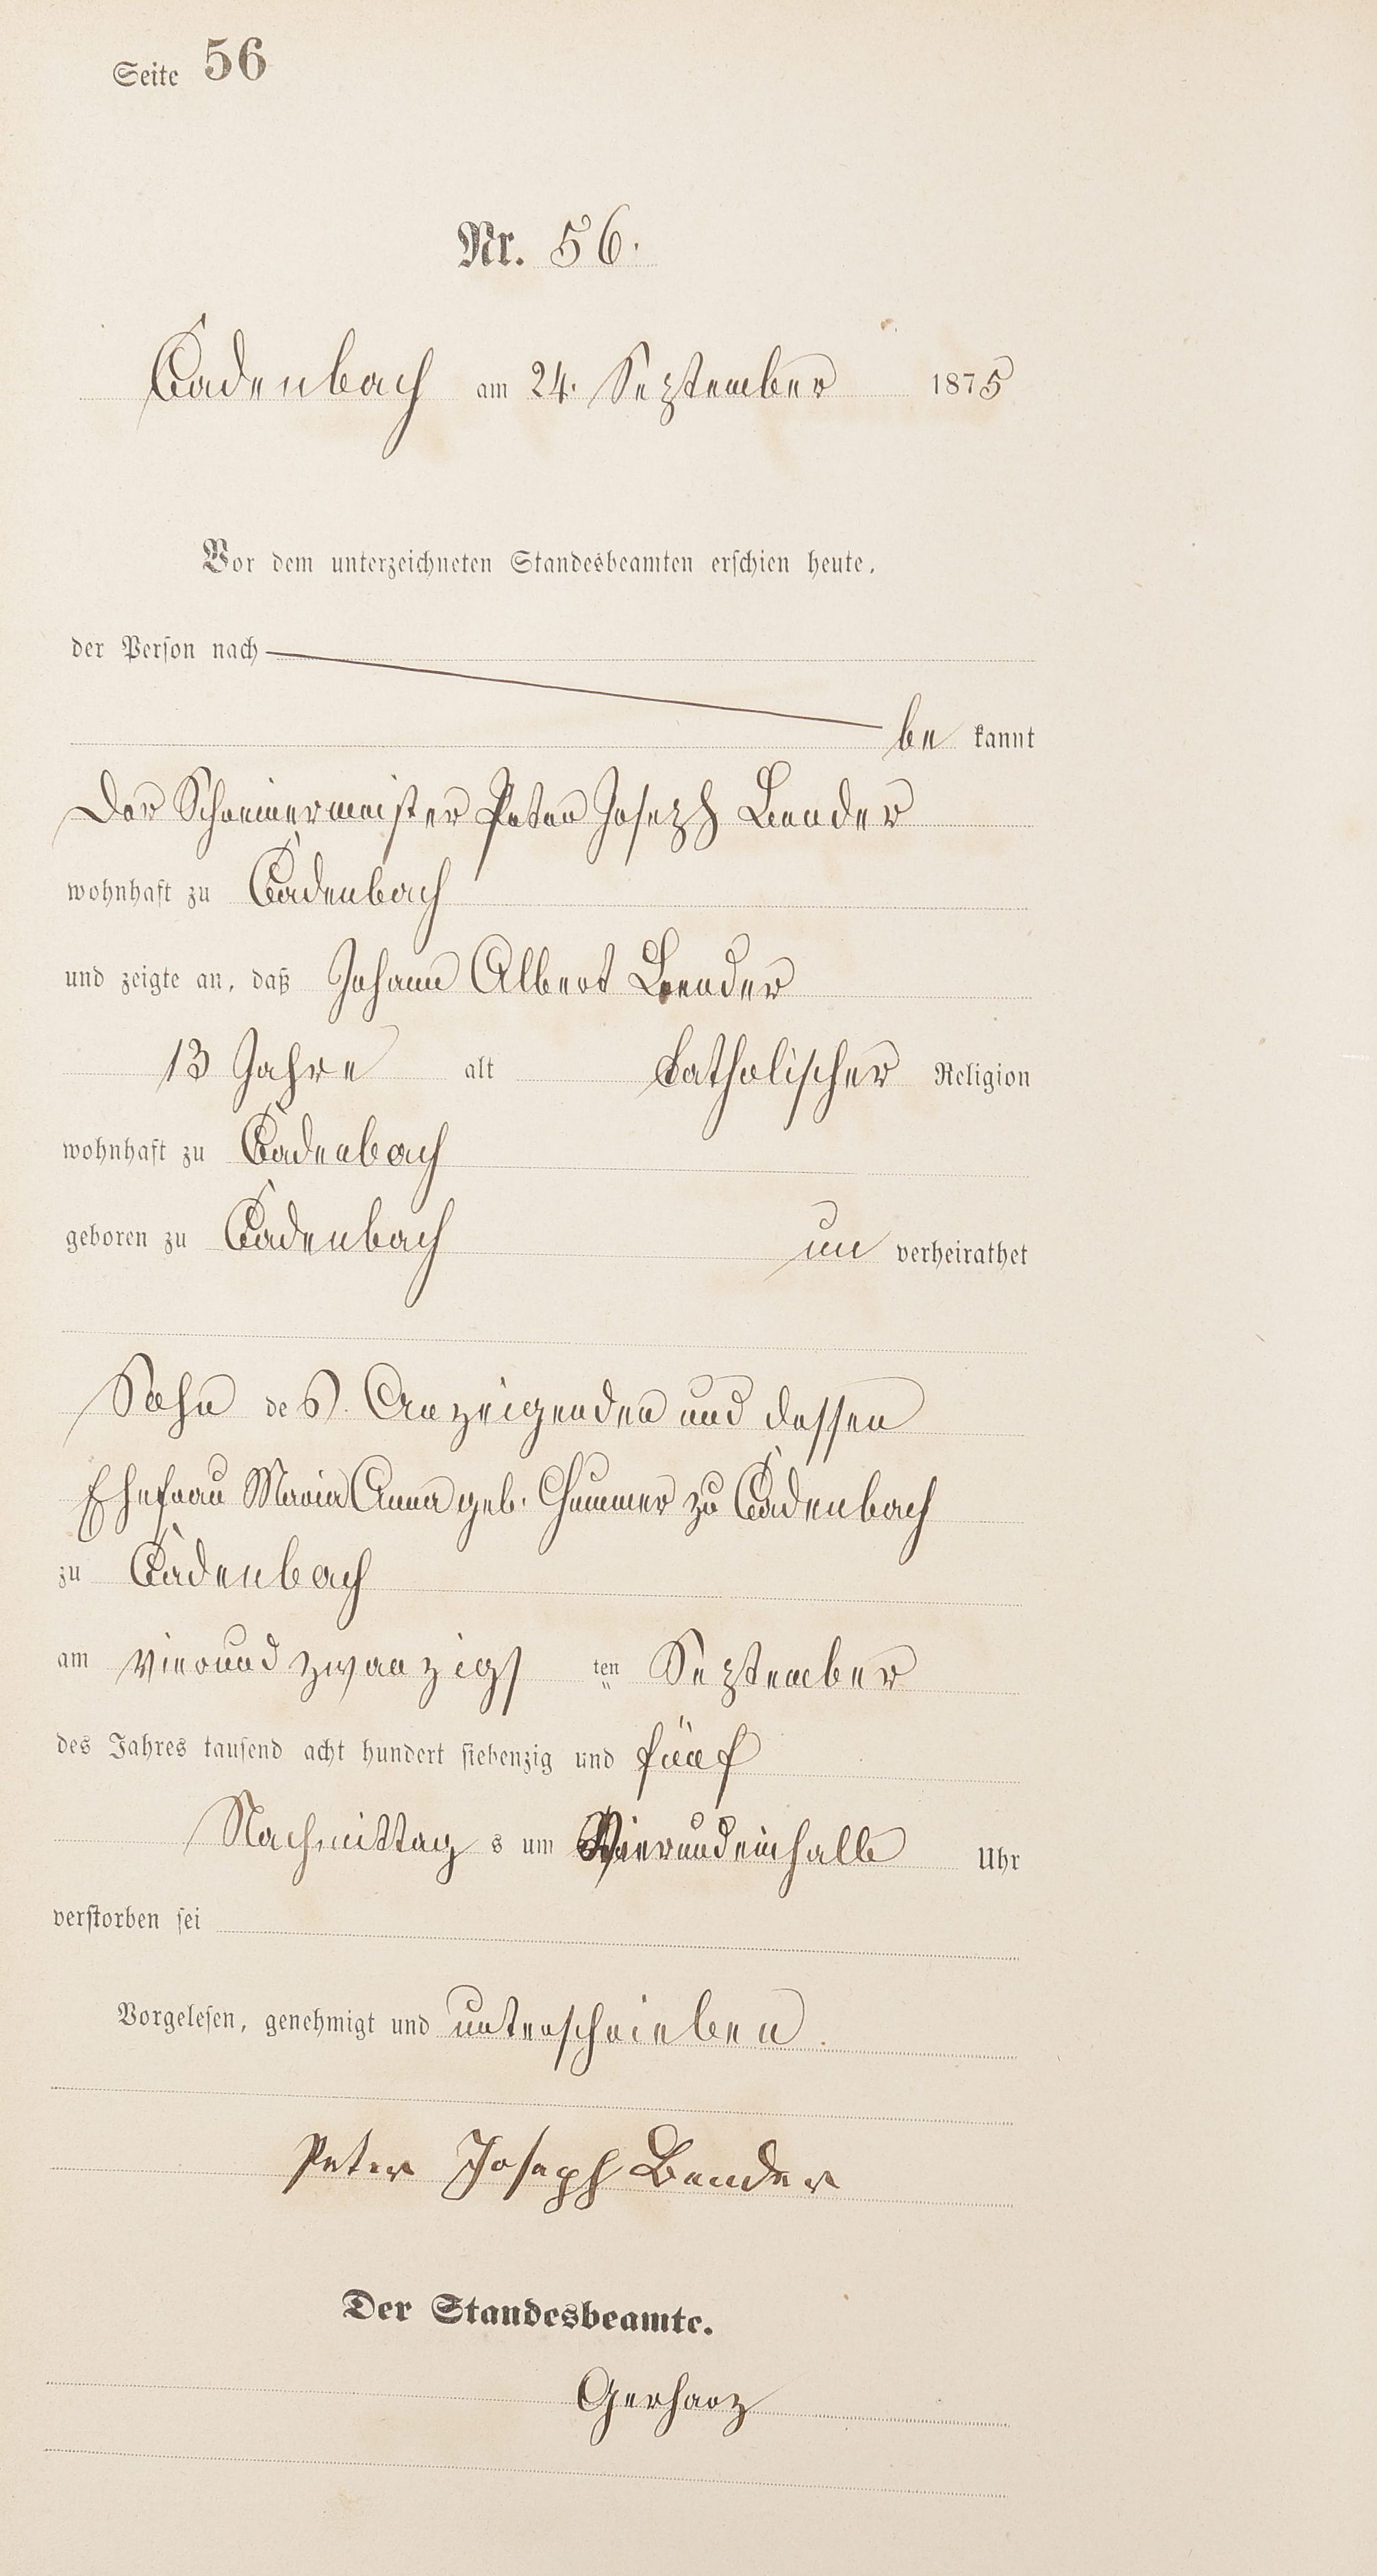 Seite 56
Nr. 56.
Cadenbach am 24. September 1875
Vor dem unterzeichneten Standesbeamten erschien heute,
der Person nach
be kannt
Der Schreinermeister Peter Joseph Bender
wohnhaft zu Cadenbach
und zeigte an, daß Johann Albert Bender
13 Jahre alt katholischer Religion
wohnhaft zu Cadenbach
geboren zu Cadenbach un verheirathet
Sohn des Anzeigenden und dessen
Ehefrau Maria Anna geb. zu Cadenbach
zu Cadenbach
am vierundzwanzigs ten September
des Jahres tausend acht hundert siebenzig und fünf
Nachmittag s um Vierundeinhalb Uhr
verstorben sei
Vorgelesen, genehmigt und unterschrieben.
Peter Joseph Bender
Der Standesbeamte.
Gerharz